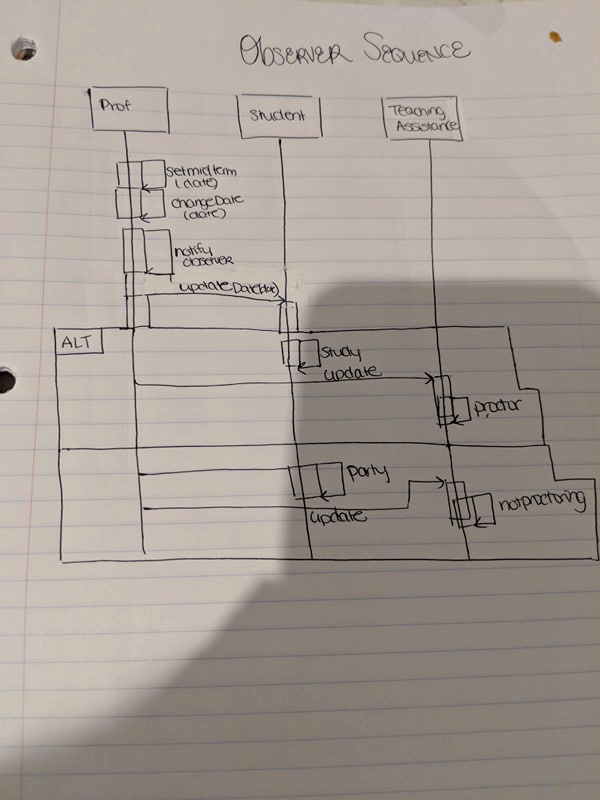 OBSERVER SEQUENCE
Prof
Student
Teaching
Assistance
setmidterm
(date)
changeDate
(date)
notify
observer
ALT
study
update
proctor
party
update
notproctoring